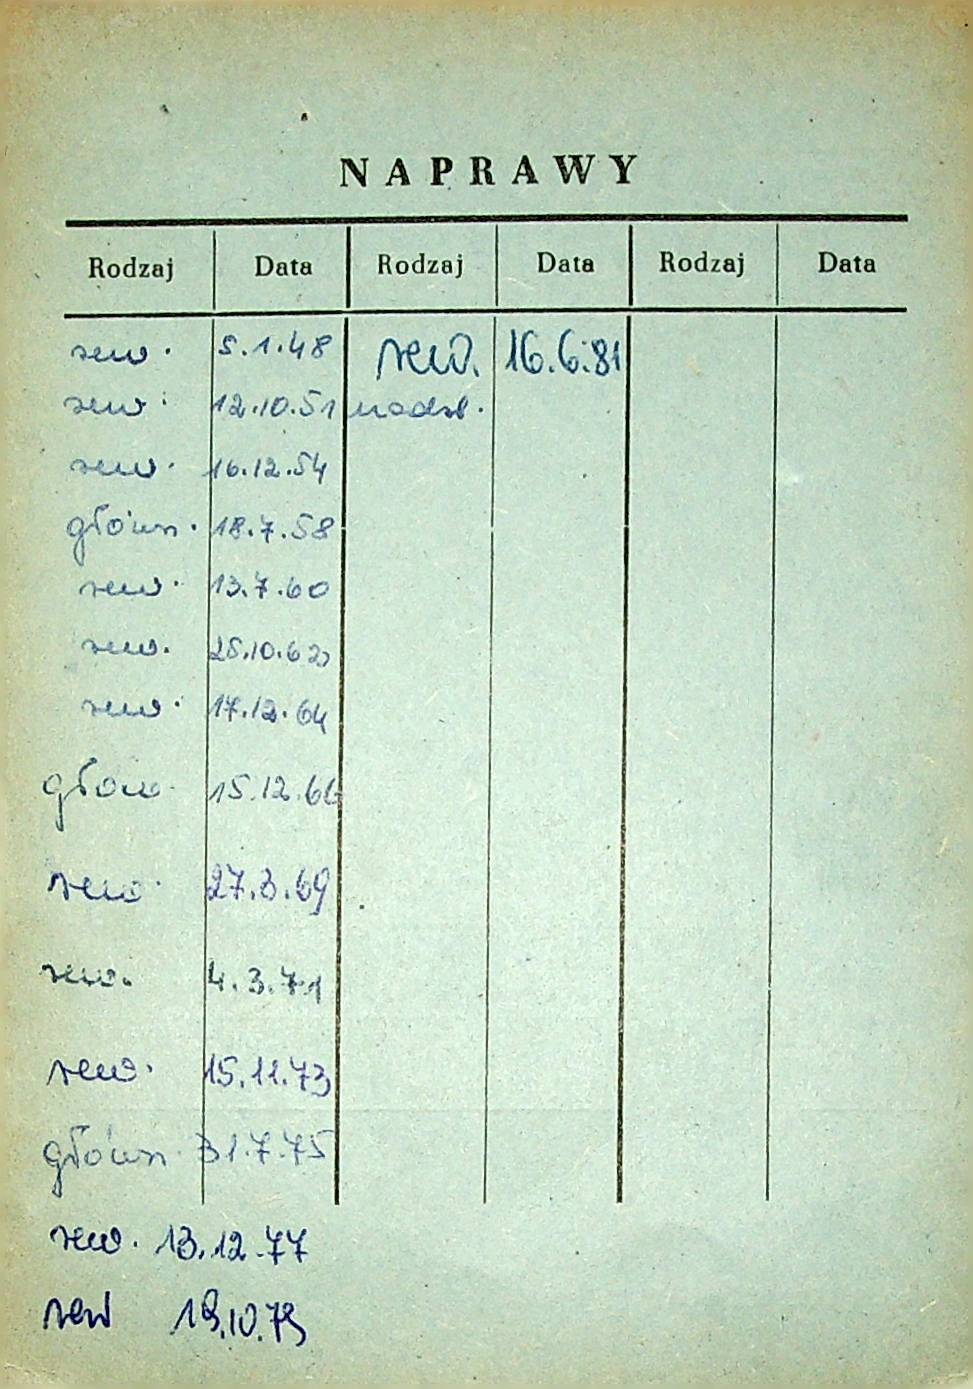 NAPRAWY
Rodzaj Data Rodzaj Data Rodzaj Data
rew. 5.1.48 rew. 16.6.81
rew. 12.10.51 nadzl.
rew. 16.12.54
główn. 18.7.58
rew. 13.7.60
rew. 25.10.62
rew. 17.12.64
głów. 15.12.66
rew. 27.3.69
rew. 4.3.71
rew. 15.11.73
główn. 31.7.75
rew. 13.12.77
rew 19.10.79